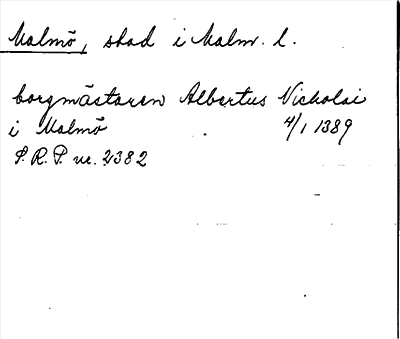 Malmö, stad i Malm. l.
borgmästaren Albertus Nicholai
i Malmö 4/1 1389
S.R.P. nr. 2382